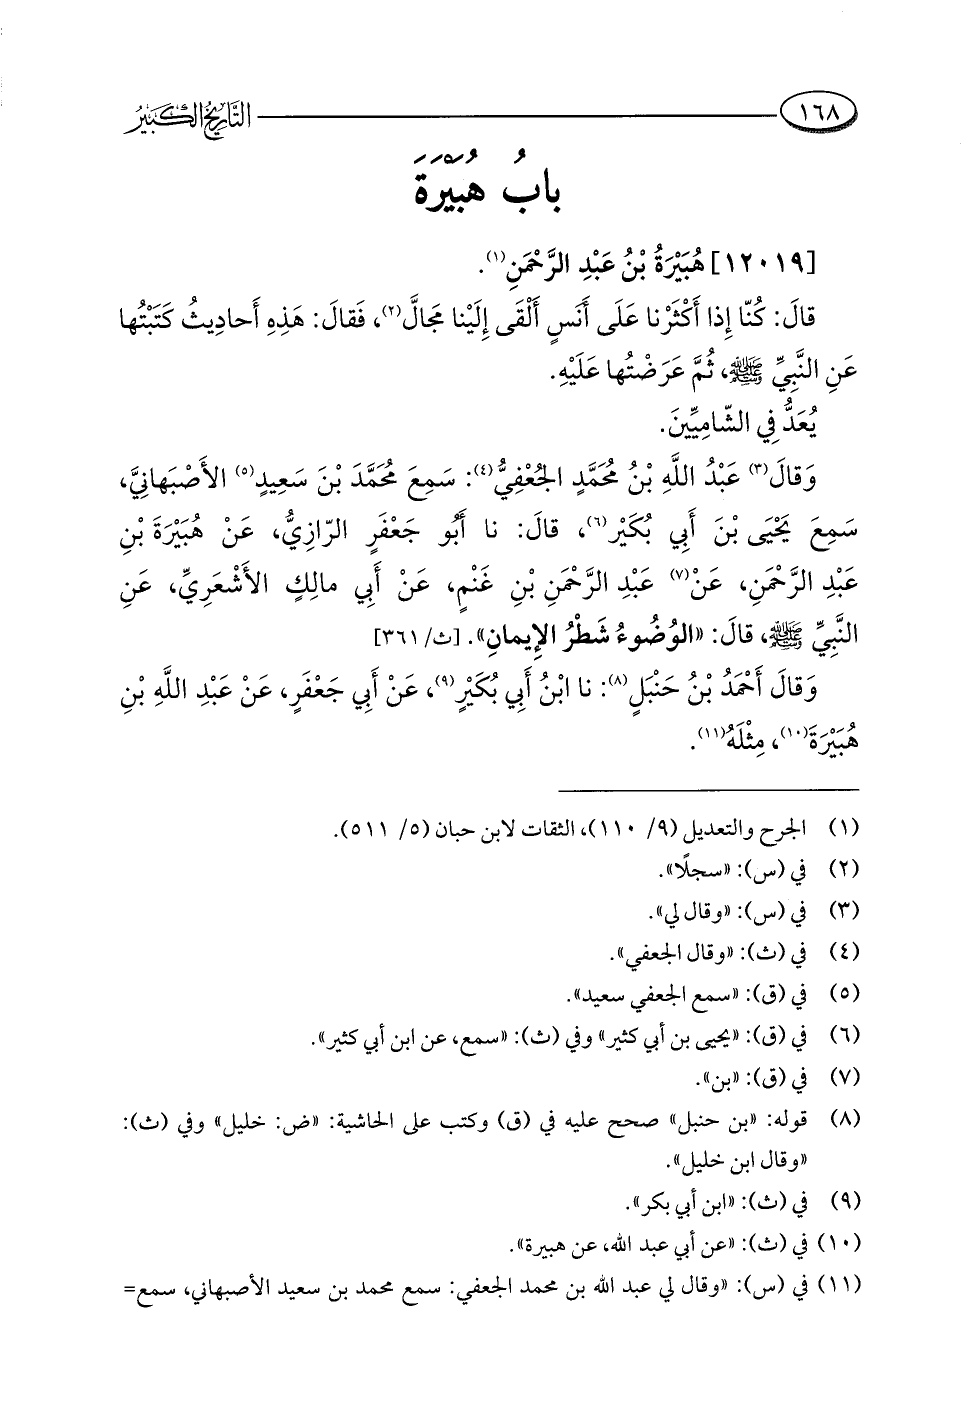 ١٦٨
التَّارِيخُ الكَبِيرُ
بابُ هُبَيْرَةَ
[١٢٠١٩] هُبَيْرَةُ بْنُ عَبْدِ الرَّحْمَنِ(١).
قالَ: كُنّا إِذا أَكْثَرْنا عَلَى أَنَسٍ أَلْقَى إِلَيْنا مَجَالَّ(٢)، فَقالَ: هَذِهِ أَحادِيثُ كَتَبْتُها
عَنِ النَّبِيِّ ﷺ، ثُمَّ عَرَضْتُها عَلَيْهِ.
يُعَدُّ فِي الشّامِيِّينَ.
وَقالَ(٣) عَبْدُ اللَّهِ بْنُ مُحَمَّدٍ الجُعْفِيُّ(٤): سَمِعَ مُحَمَّدَ بْنَ سَعِيدٍ(٥) الأَصْبَهانِيَّ،
سَمِعَ يَحْيَى بْنَ أَبِي بُكَيْر(٦)، قالَ: نا أَبُو جَعْفَرٍ الرّازِيُّ، عَنْ هُبَيْرَةَ بْنِ
عَبْدِ الرَّحْمَنِ، عَنْ(٧) عَبْدِ الرَّحْمَنِ بْنِ غَنْمٍ، عَنْ أَبِي مالِكٍ الأَشْعَرِيِّ، عَنِ
النَّبِيِّ ﷺ، قالَ: «الوُضُوءُ شَطْرُ الإِيمانِ». [ث/ ٣٦١]
وَقالَ أَحْمَدُ بْنُ حَنْبَلٍ(٨): نا ابْنُ أَبِي بُكَيْرٍ(٩)، عَنْ أَبِي جَعْفَرٍ، عَنْ عَبْدِ اللَّهِ بْنِ
هُبَيْرَةَ(١٠)، مِثْلَهُ(١١).
(١) الجرح والتعديل (٩/ ١١٠)، الثقات لابن حبان (٥/ ٥١١).
(٢) في (س): «سجلًا».
(٣) في (س): «وقال لي».
(٤) في (ث): «وقال الجعفي».
(٥) في (ق): «سمع الجعفي سعيد».
(٦) في (ق): «يحيى بن أبي كثير» وفي (ث): «سمع، عن ابن أبي كثير».
(٧) في (ق): «بن».
(٨) قوله: «بن حنبل» صحح عليه في (ق) وكتب على الحاشية: «ض: خليل» وفي (ث):
«وقال ابن خليل».
(٩) في (ث): «ابن أبي بكر».
(١٠) في (ث): «عن أبي عبد الله، عن هبيرة».
(١١) في (س): «وقال لي عبد الله بن محمد الجعفي: سمع محمد بن سعيد الأصبهاني، سمع=